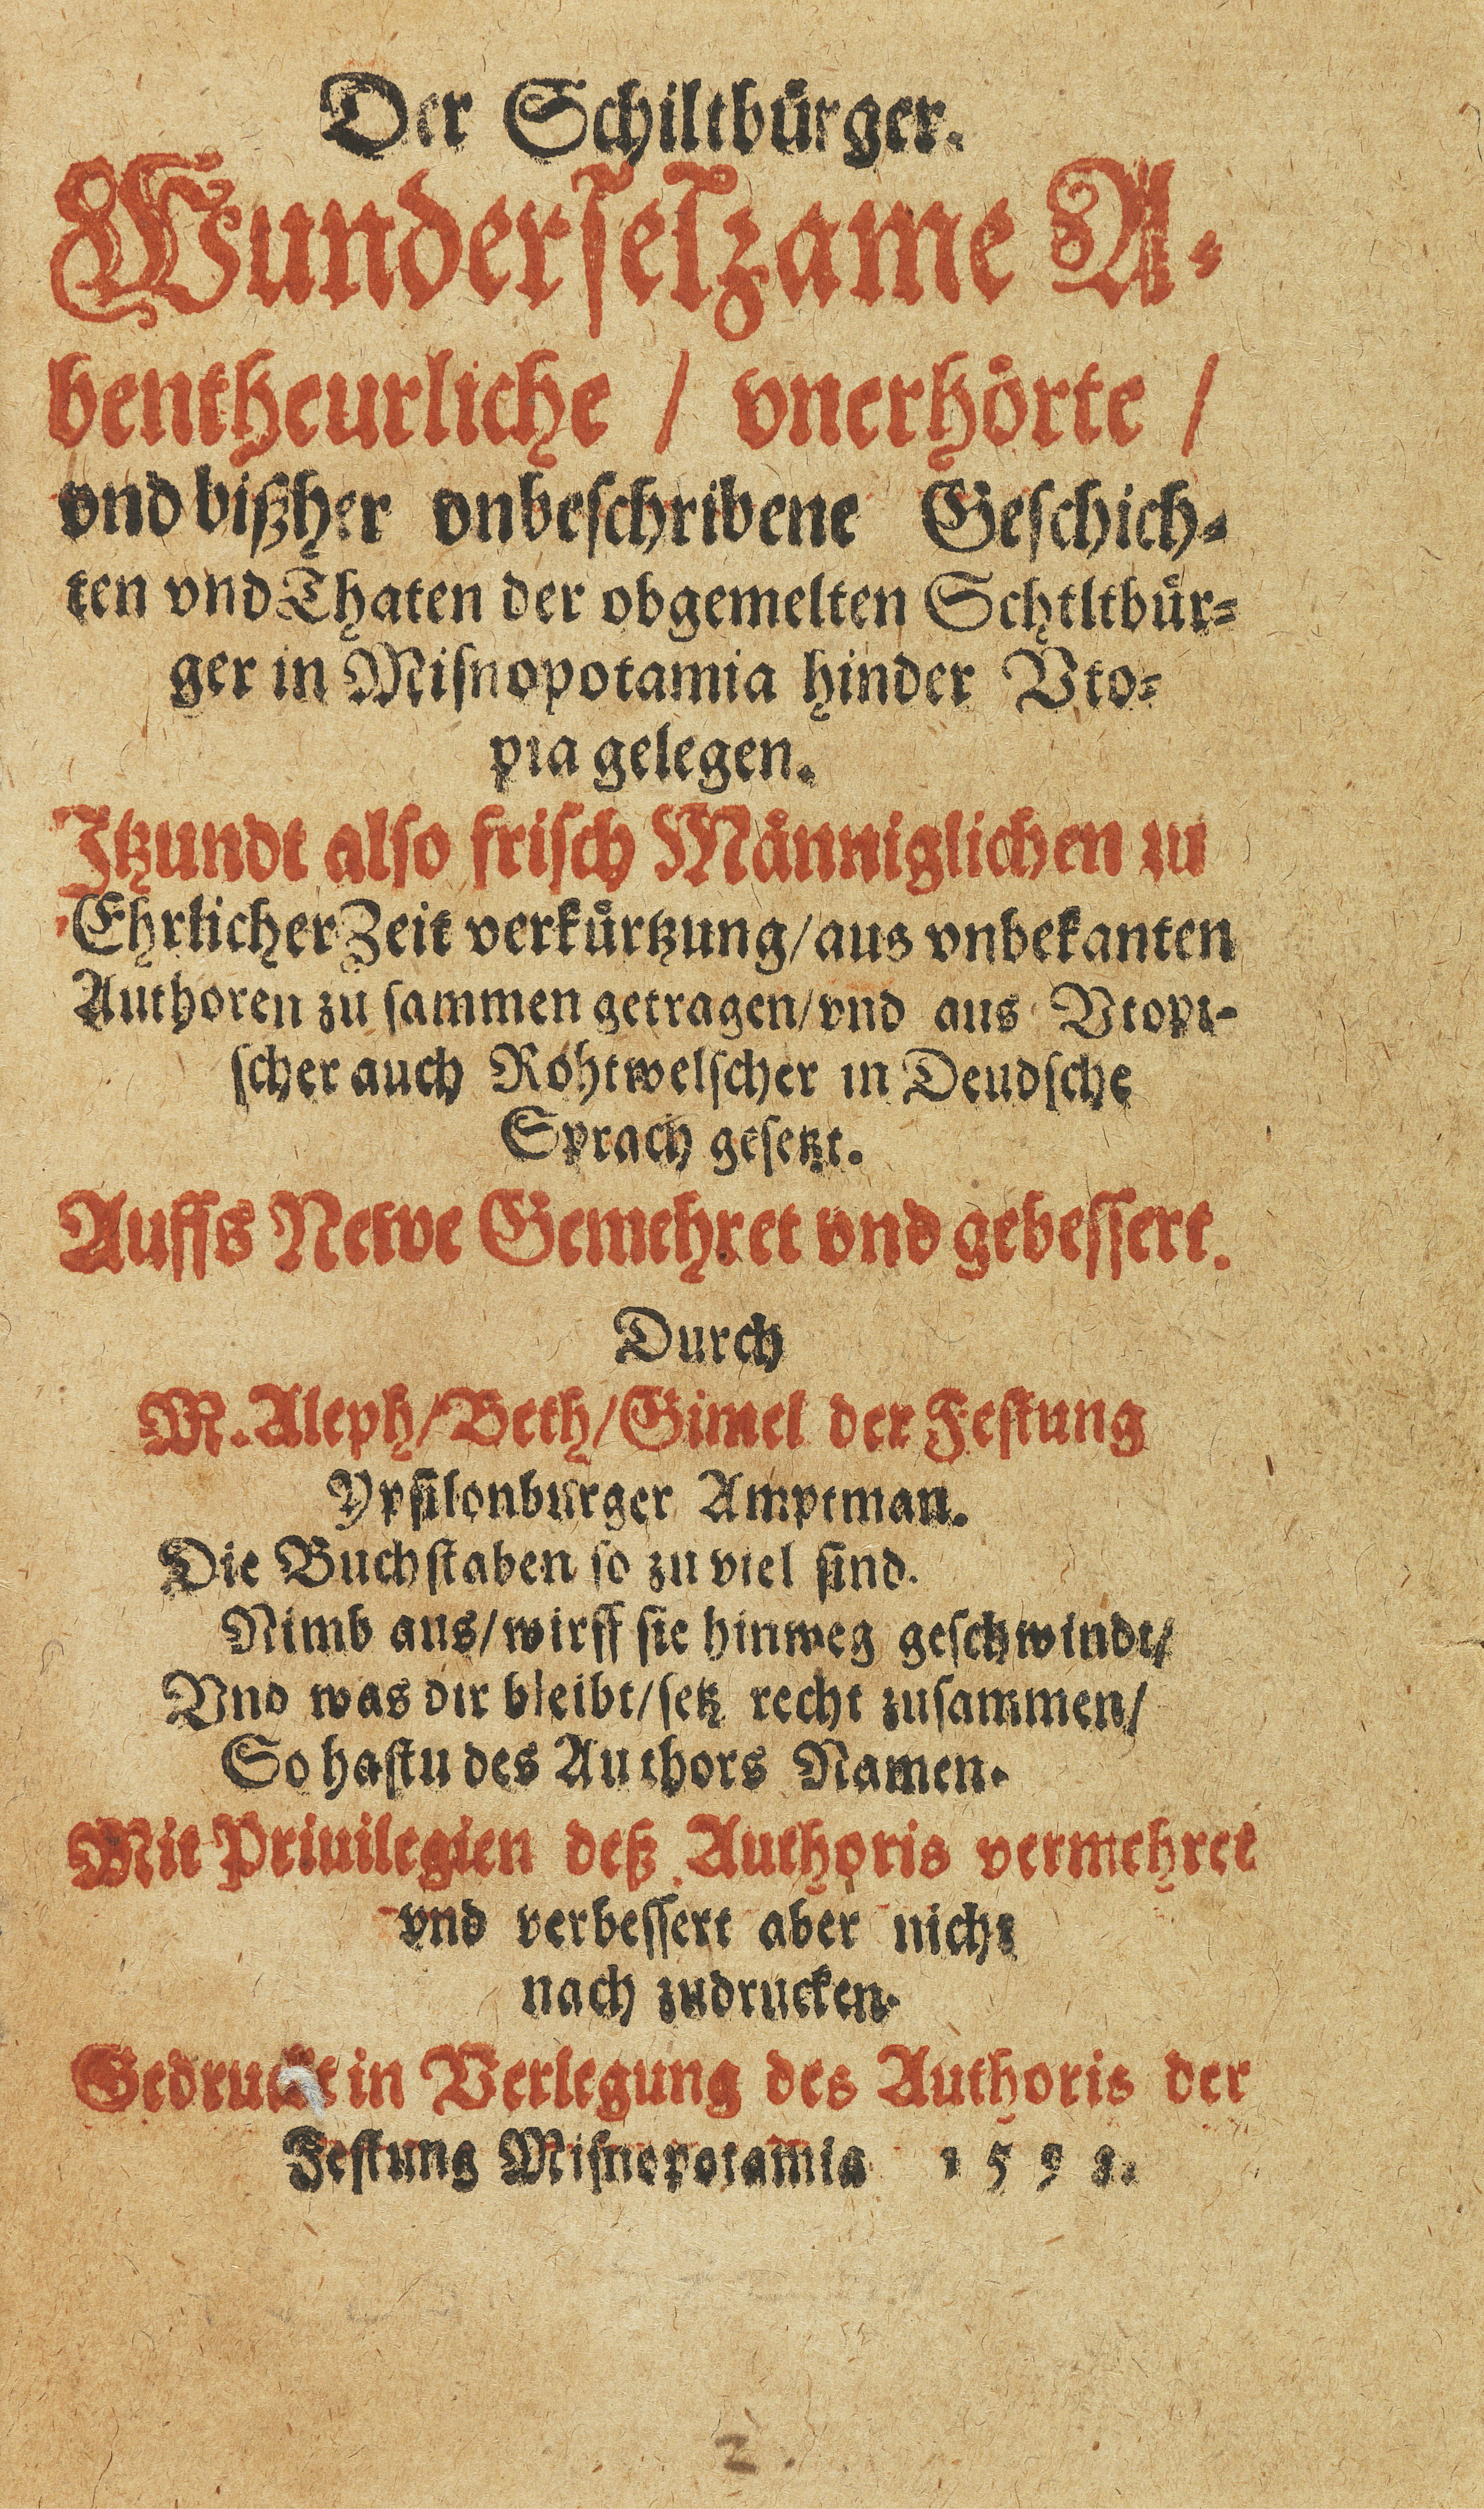 Der Schiltbůrger.
Wunderselzame A-
bentheurliche / vnerhőrte /
vnd bißher vnbeschribene Geschich-
ten vnd Thaten der obgemelten Schtltbůr-
ger in Misnopotamia hinder Vto-
pia gelegen.
Itzundt also frisch Månniglichen zu
Ehrlicher Zeit verkůrtzung/aus vnbekanten
Authoren zu sammen getragen/vnd aus Vtopi-
scher auch Rohtwelscher in Deudsche
Sprach gesetzt.
Auffs Newe Gemehret vnd gebessert.
Durch
M. Aleph/Beth/Gimel der Festung
Ypsilonburger Amptman.
Die Buchstaben so zu viel sind.
Nimb aus/wirff sie hinweg geschwindt/
Vnd was dir bleibt/setz recht zusammen/
So hastu des Authors Namen.
Mit Priuilegien deß Authoris vermehret
vnd verbessert aber nicht
nach zudrucken.
Gedruckt in Verlegung des Authoris der
Festung Misnopotamia 1598.
2